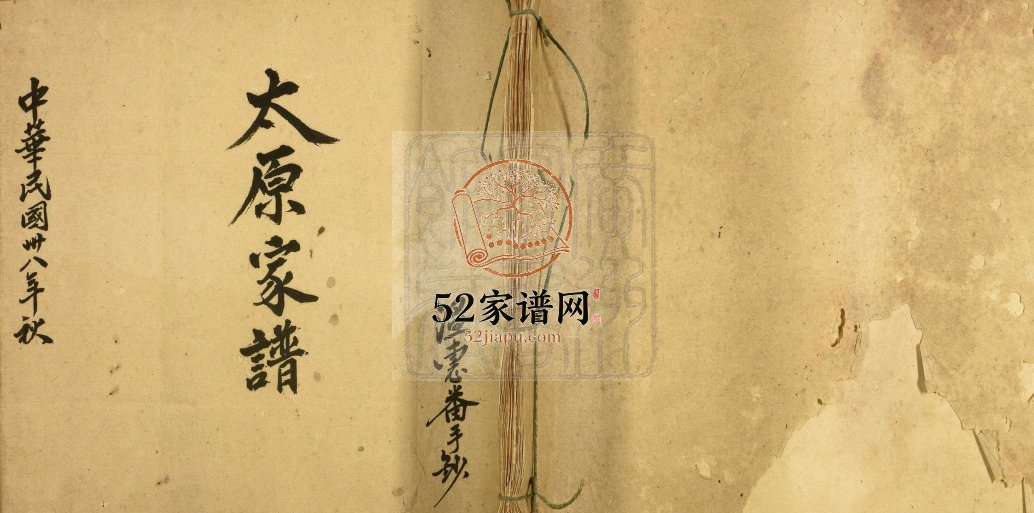 溫惠番手鈔
太原家譜
中華民國卅八年秋
52家谱网
52jiapu.com